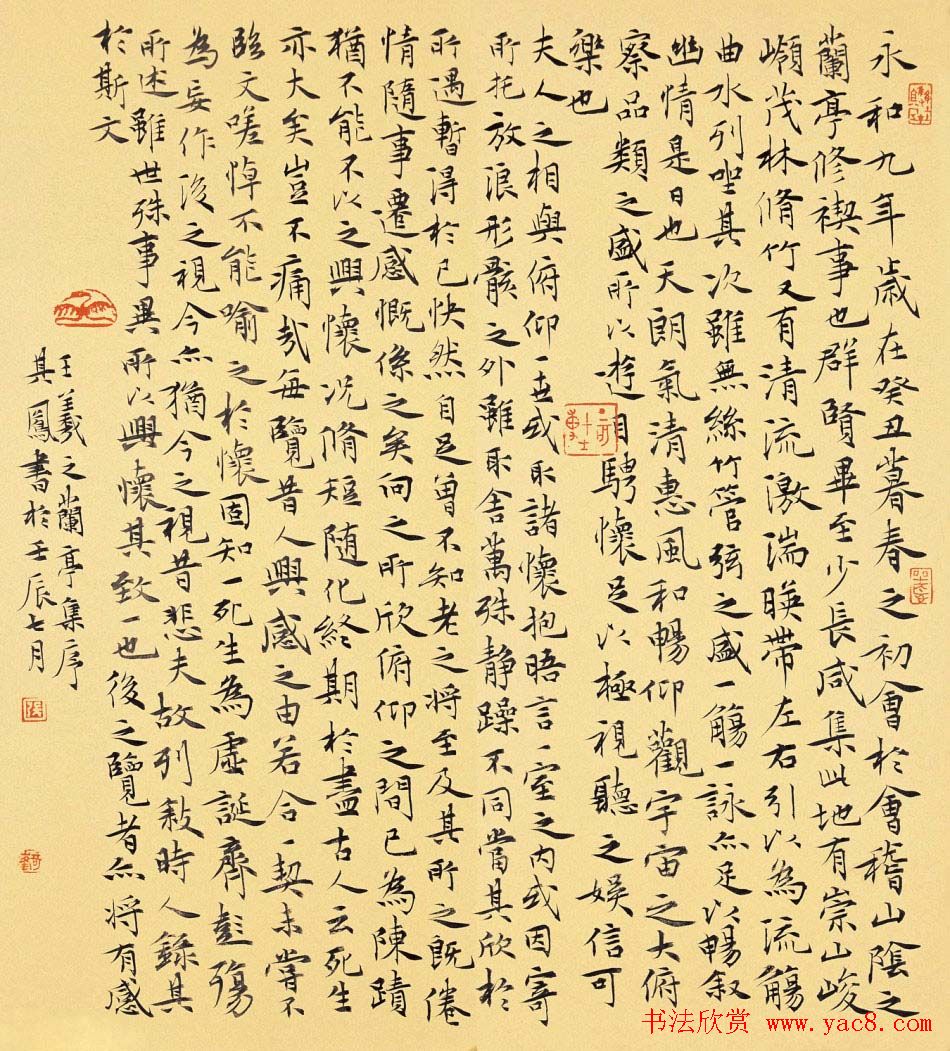 永和九年歲在癸丑暮春之初會於會稽山陰之
蘭亭修禊事也群賢畢至少長咸集此地有崇山峻
嶺茂林脩竹又有清流激湍暎帶左右引以為流觴
曲水列坐其次雖無絲竹管弦之盛一觴一詠亦足以暢敘
幽情是日也天朗氣清惠風和暢仰觀宇宙之大俯
察品類之盛所以遊目騁懷足以極視聽之娛信可
樂也
夫人之相與俯仰一世或取諸懷抱晤言一室之內或因寄
所托放浪形骸之外雖取舍萬殊静躁不同當其欣於
所遇暫得於已快然自足曾不知老之將至及其所之既倦
情隨事遷感慨係之矣向之所欣俯仰之間已為陳蹟
猶不能不以之興懷況脩短随化終期於盡古人云死生
亦大矣豈不痛哉每覽昔人興感之由若合一契未嘗不
臨文嗟悼不能喻之於懷固知一死生為虛誕齊彭殤
為妄作後之視今亦猶今之視昔悲夫故列敘時人錄其
所述雖世殊事異所以興懷其致一也後之覽者亦將有感
於斯文
王羲之蘭亭集序
其鳳書於壬辰七月
书法欣赏 www.yac8.com